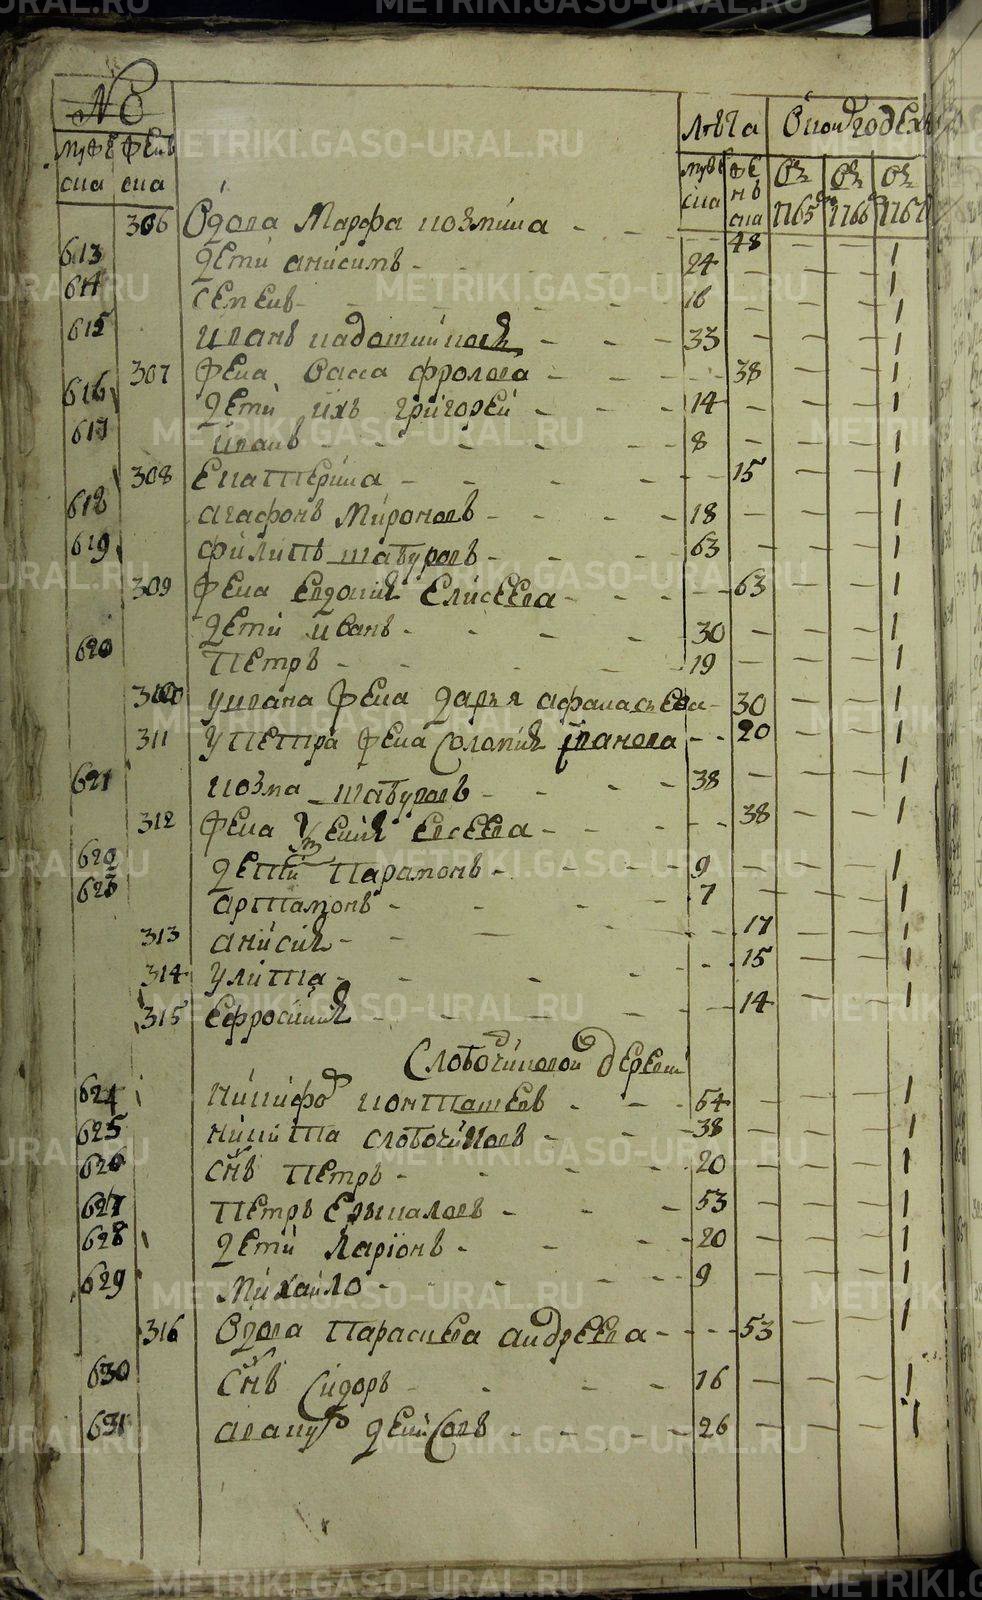 №
мужеска женска
лѣта
мужеска женска
1765 1766 1767
306 вдова марфа козмина - - - 48 - - 1
613 дети анисимъ - 24 - - - 1
614 семенъ - 16 - - - 1
615 иванъ - 33 - - - 1
307 жена васса фролова - 38 - - 1
616 дети ихъ григорей - 14 - - - 1
617 иванъ - 8 - - - 1
308 екатерина - 15 - - 1
618 агафонъ мироновъ - 18 - - - 1
619 филипъ шабуровъ - 63 - - - 1
309 жена евдокия елисеева - 63 - - 1
дети иванъ - 30 - - - 1
620 петръ - 19 - - - 1
310 у ивана жена дарья афанасьева - 30 - - 1
311 у петра жена соломия иванова - 20 - - 1
621 козма шабуровъ - 38 - - - 1
312 жена евсеева - 38 - - 1
622 дети парамонъ - 9 - - - 1
623 артамонъ - 7 - - - 1
313 анисия - 17 - - 1
314 улита - 15 - - 1
315 ефросиния - 14 - - 1
слободчиковой деревни
624 никифоръ конташевъ - 54 - - - 1
625 никита слободчиковъ - 38 - - - 1
626 снъ петръ - 20 - - - 1
627 петръ ермалаевъ - 53 - - - 1
628 дети ларионъ - 20 - - - 1
629 михайло - 9 - - - 1
316 вдова парасковья андреева - 53 - - 1
630 снъ сидоръ - 16 - - - 1
631 денисовъ - 26 - - - 1
METRIKI.GASO-URAL.RU